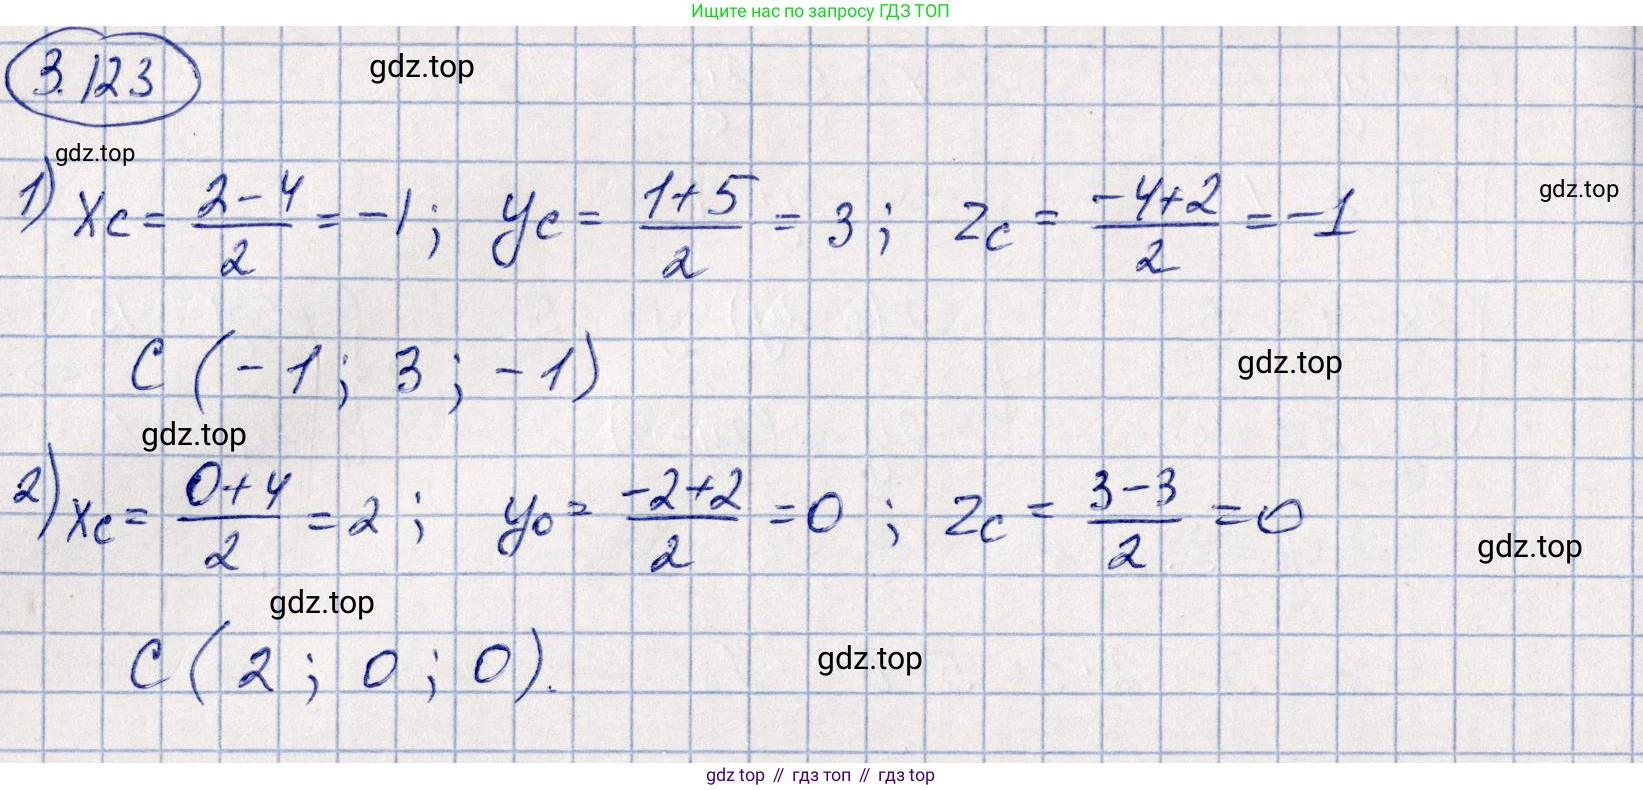 Ищите нас по запросу ГДЗ ТОП
3.123
gdz.top
gdz.top
1) xc = (2 - 4)/2 = -1; yc = (1 + 5)/2 = 3; zc = (-4+2)/2 = -1
gdz.top
C (-1; 3; -1)
gdz.top
gdz.top
2) xc = (0+4)/2 = 2; yo = (-2+2)/2 = 0; zc = (3-3)/2 = 0
gdz.top
gdz.top
C (2; 0; 0).
gdz.top
gdz top // гдз топ // гдз top